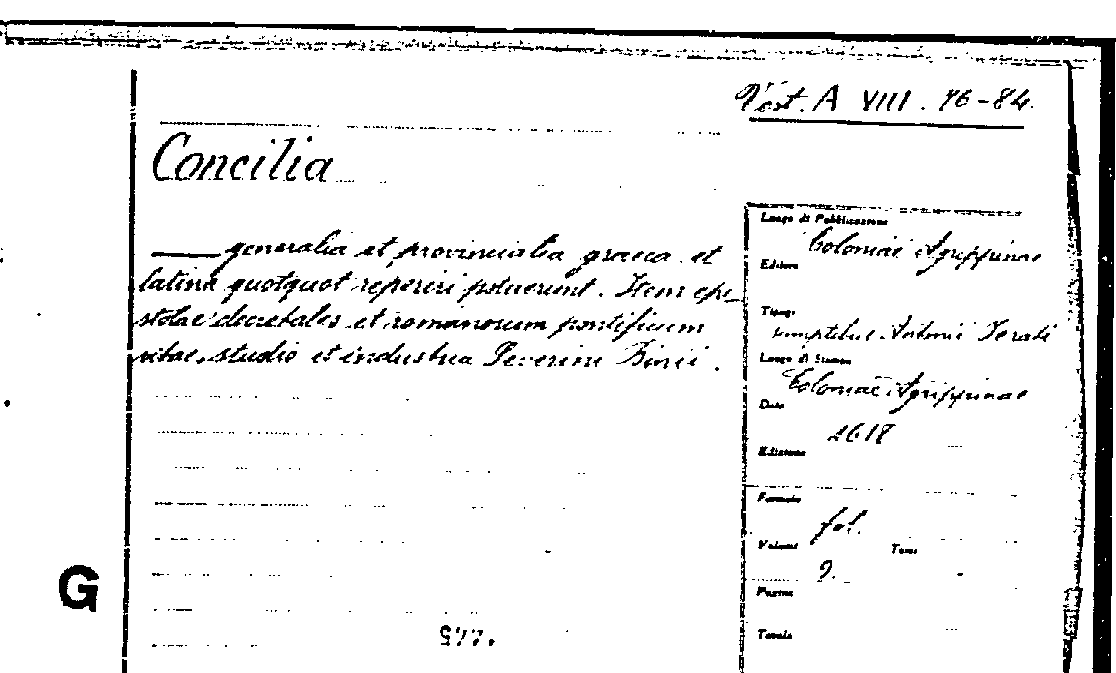 Vest. A VIII. 76-84.
Concilia
____ generalia et provincialia graeca et
latina quotquot reperiri potuerunt. Item epi-
stolae decretales et romanorum pontificum
vitae, studio et industria Severini Binii.
Luogo di Pubblicazione
Coloniae Agrippinae
Editore
Tipogr.
sumptibus Antonii Hierati
Luogo di Stampa
Coloniae Agrippinae
Data
1618
Edizione
Formato
fol.
Volume Tomi
9.
Pagine
Tavole
G
977.